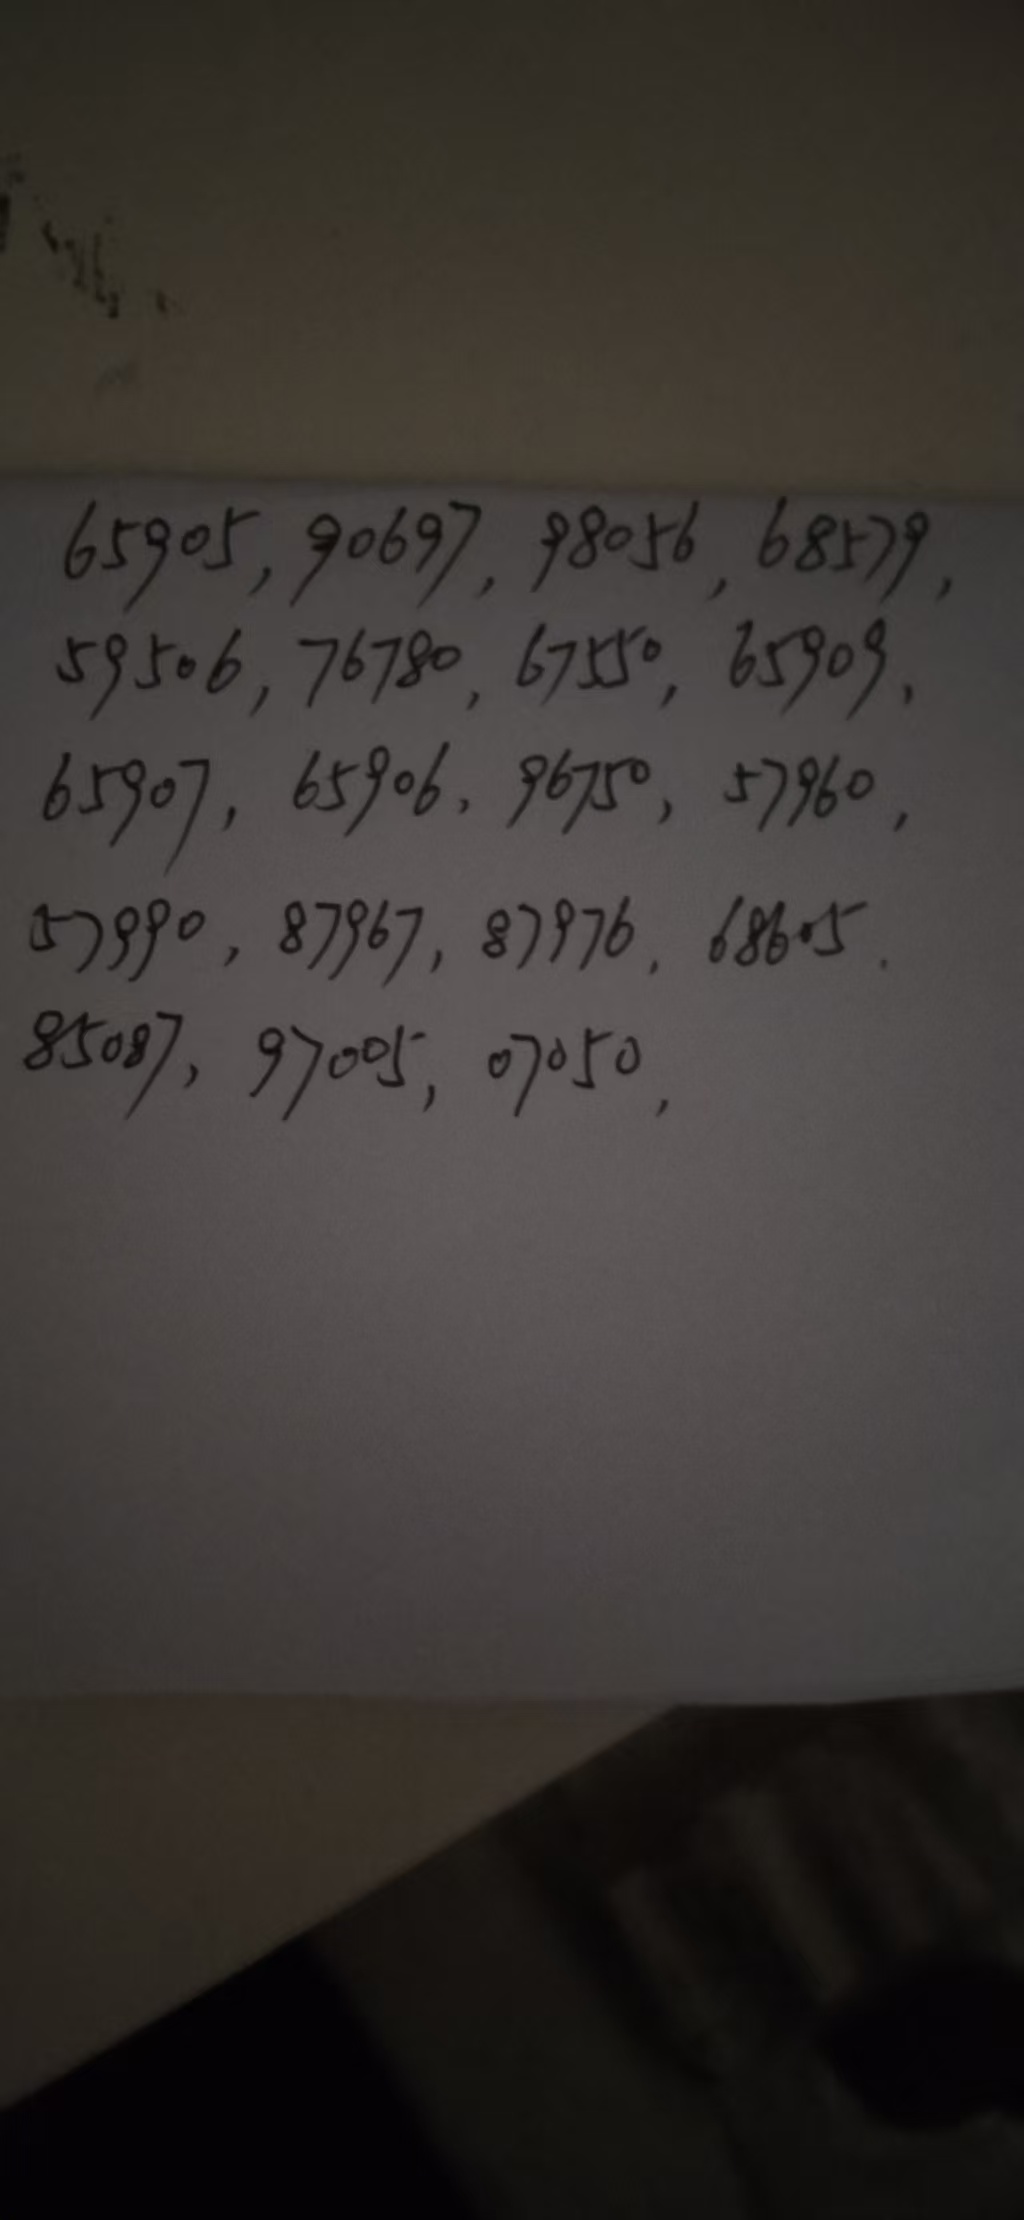 65905, 90697, 98056, 68579,
59506, 76780, 67550, 65909,
65907, 65906, 96750, 57960,
57990, 87967, 87976, 68605.
85087, 97005, 07050,